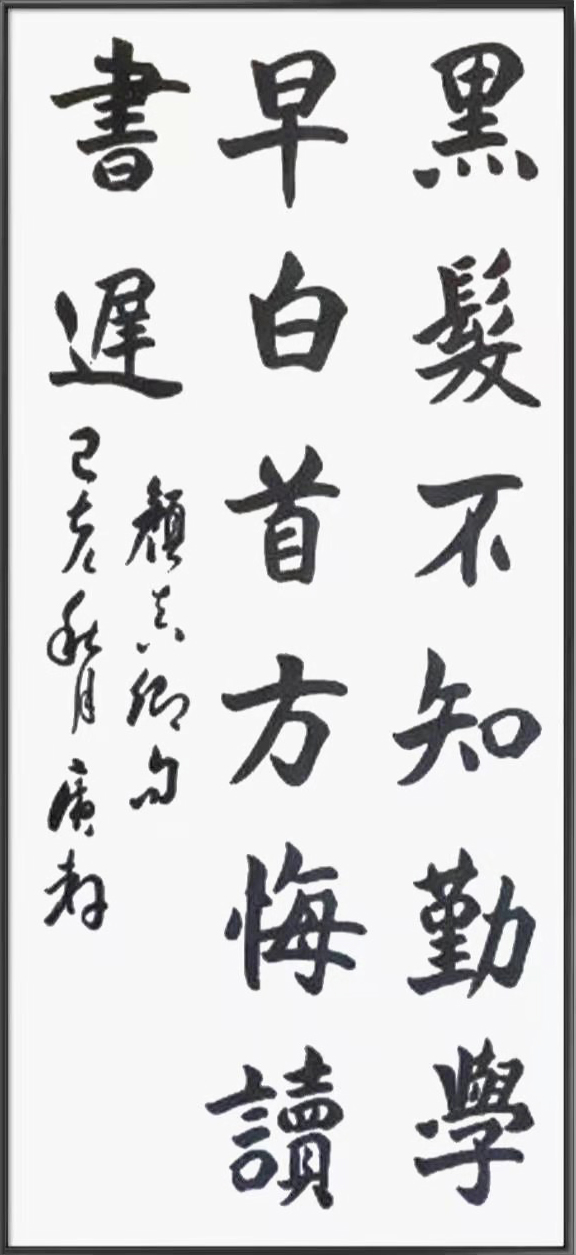 黑髮不知勤學
早白首方悔讀
書遲
顏真卿句
己亥秋月廣群